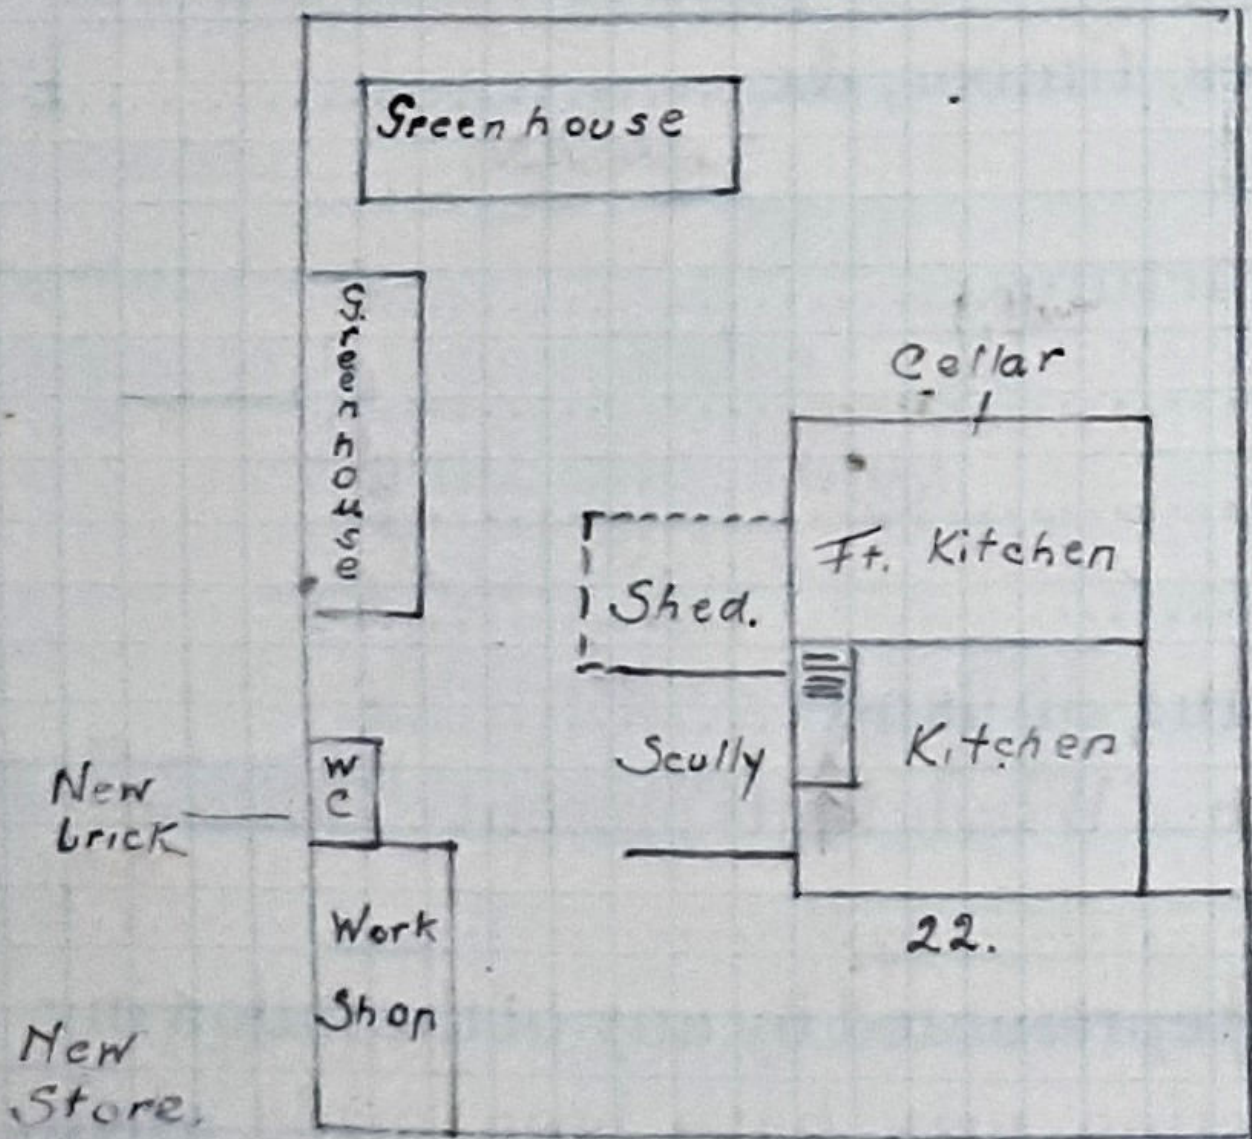 Greenhouse
Greenhouse
Cellar
Ft. Kitchen
Shed.
Scully
Kitchen
New
brick
W
C
22.
Work
Shop
New
Store.